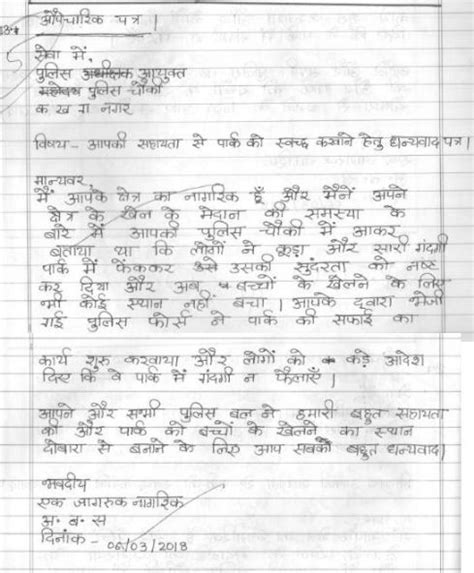 औपचारिक पत्र |
सेवा में,
पुलिस आयुक्त
पुलिस चौकी
क ख ग नगर
विषय - आपकी सहायता से पार्क को स्वच्छ करवाने हेतु धन्यवाद पत्र |
मान्यवर,
मैं आपके क्षेत्र का नागरिक हूँ और मैनें अपने
क्षेत्र के खेल के मैदान की समस्या के
बारे में आपकी पुलिस चौकी में आकर
बताया था कि लोगों ने कूड़ा और सारी गंदगी
पार्क में फेंककर उसकी सुंदरता को नष्ट
कर दिया और अब बच्चों के खेलने के लिए
भी कोई स्थान नहीं बचा | आपके द्वारा भेजी
गई पुलिस फोर्स ने पार्क की सफाई का
कार्य शुरू करवाया और लोगों को कड़े आदेश
दिए कि वे पार्क में गंदगी न फैलाएँ |
आपने और सभी पुलिस बल ने हमारी बहुत सहायता
की और पार्क को बच्चों के खेलने का स्थान
दोबारा से बनाने के लिए आप सबको बहुत धन्यवाद |
भवदीय
एक जागरुक नागरिक
अ. ब. स
दिनांक - 06/03/2018